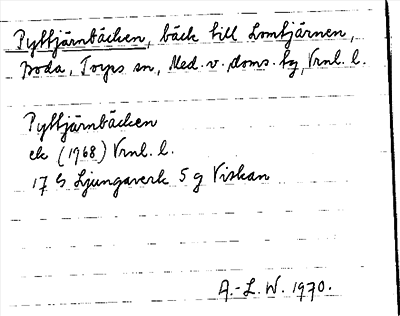 Pyttjärnbäcken, bäck till Lomtjärnen,
Boda, Torps sn, Med. v. doms. tg, Vrnl. l.
Pyttjärnbäcken
ek (1968) Vrnl. l.
17 G Ljungaverk 5 g Viskan
A.-L. W. 1970.